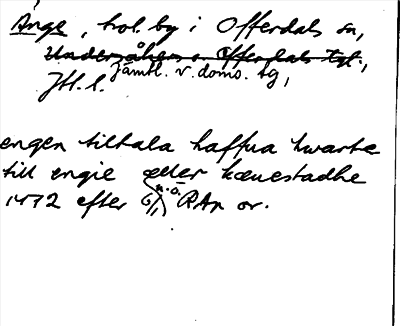 Ånge, bol. by i Offerdals sn,
Undersåkers o. Offerdals tgl.,
Jämtl. v. doms. tg,
Jtl. l.
engen tilltala haffua hwarte
till engie eller kœnestadhe
1472 efter 6/1 n.ö. RAp or.